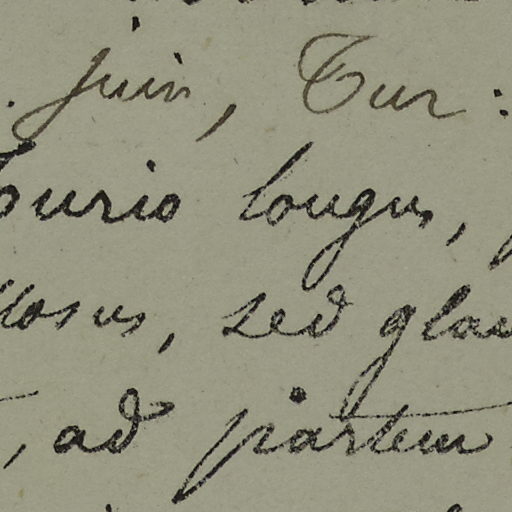 juin, Tur:
Turio longus,
llosus, sed glau
, ad partem